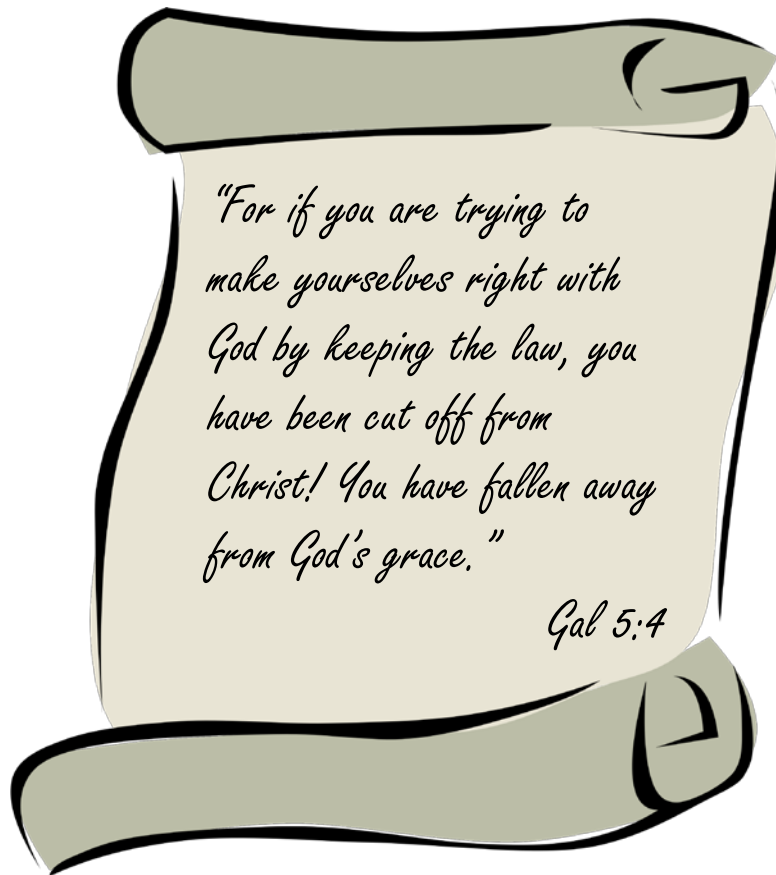 “For if you are trying to
make yourselves right with
God by keeping the law, you
have been cut off from
Christ! You have fallen away
from God’s grace.”
Gal 5:4